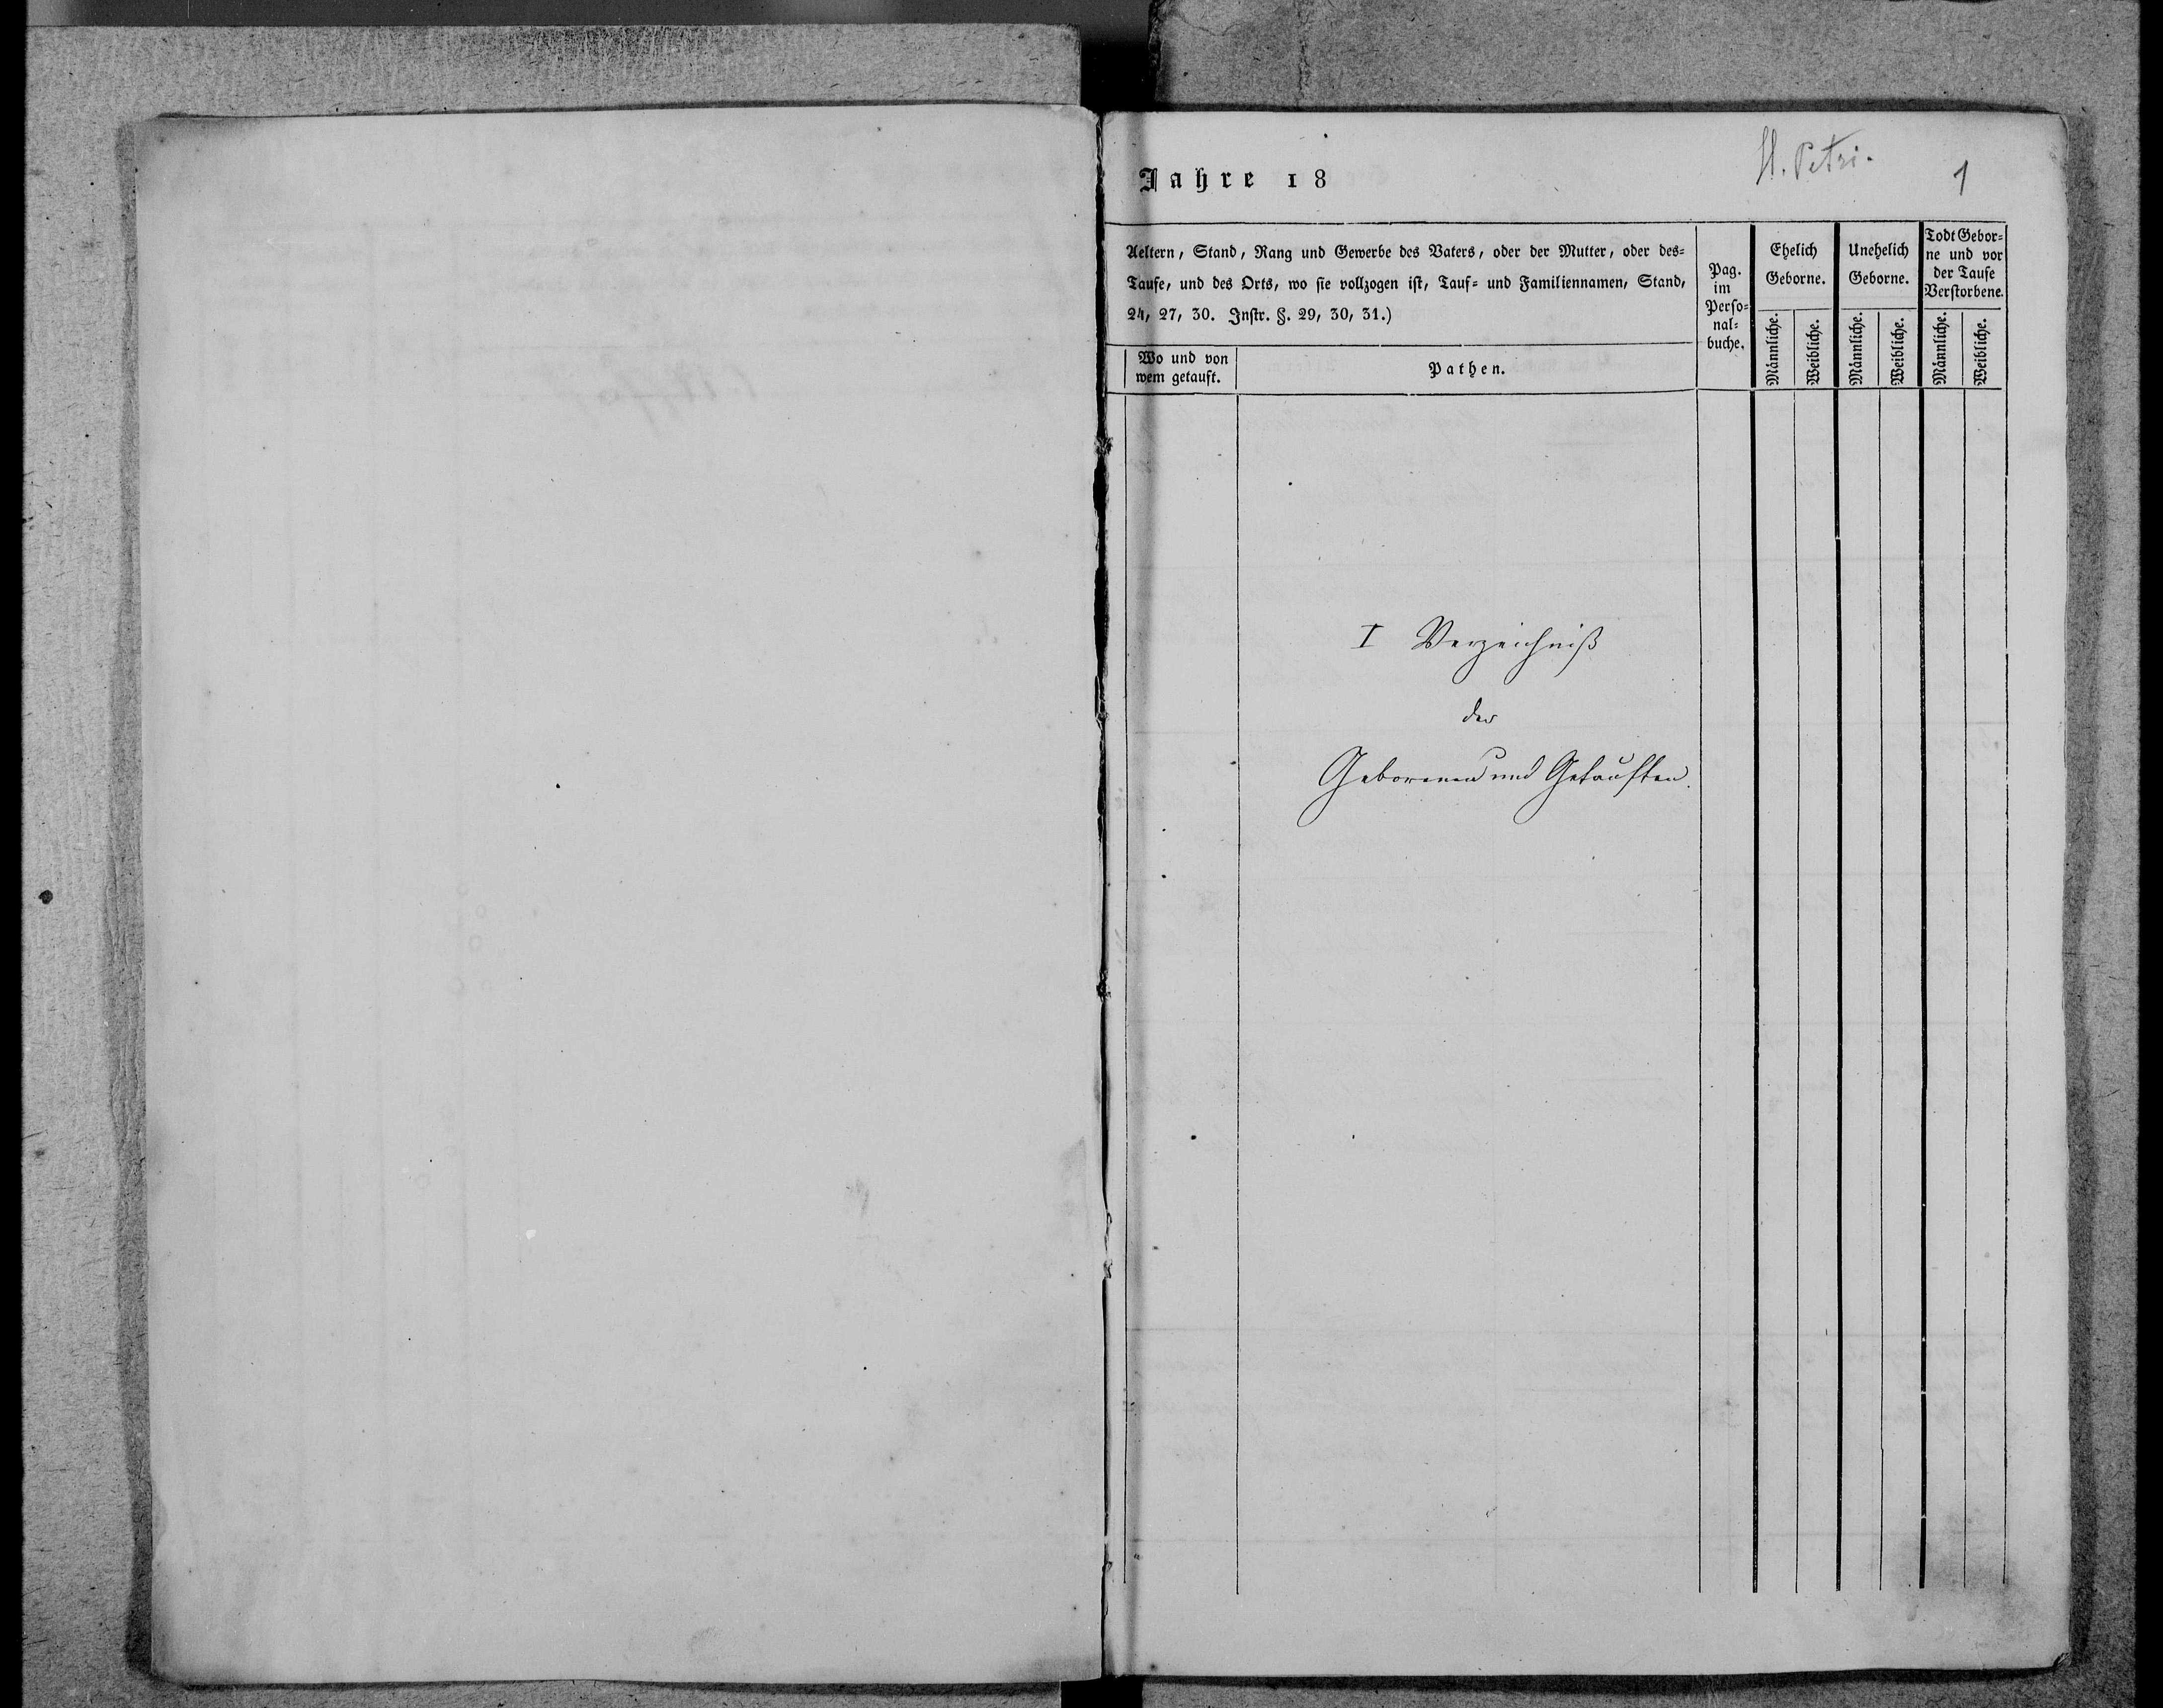 St. Petri.
1
Jahre 18
Aeltern, Stand, Rang und Gewerbe des Vaters, oder der Mutter, oder des=
Taufe, und des Orts, wo sie vollzogen ist, Tauf= und Familiennamen, Stand,
24, 27, 30. Instr. §. 29, 30, 31.)
Wo und von
wem getauft.
Pathen.
Pag.
im
Perso=
nal=
buche.
Ehelich
Geborne.
Männliche.
Weibliche.
Unehelich
Geborne.
Männliche.
Weibliche.
Todt Gebor=
ne und vor
der Taufe
Verstorbene.
Männliche.
Weibliche.
I Verzeichniß
der
Geborenen und Getauften.